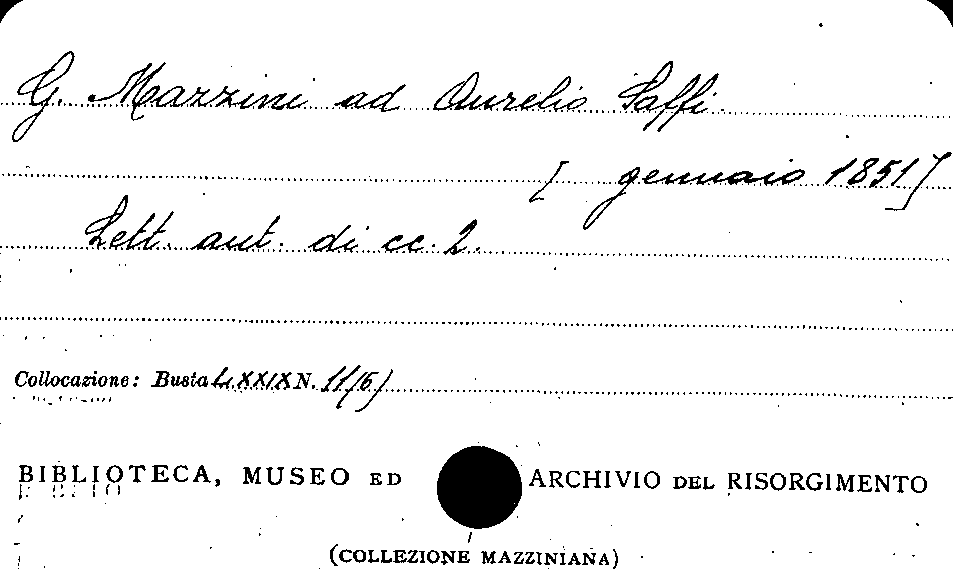 G. Mazzini ad Aurelio Saffi.
[ gennaio 1851]
Lett. aut. di cc. 2.
Collocazione: Busta LXXIX N. 11/6)
BIBLIOTECA, MUSEO ED ARCHIVIO DEL RISORGIMENTO
(COLLEZIONE MAZZINIANA)